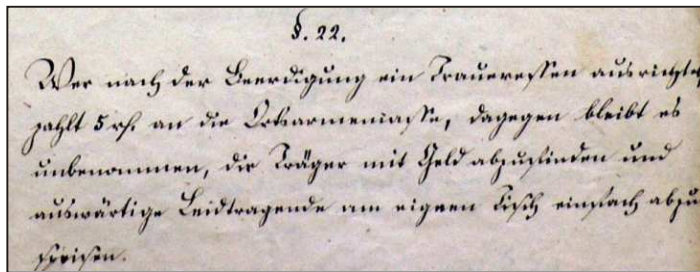 §. 22.
Wer nach der Beerdigung ein Traueressen ausrichtet
zahlt 5 rf. an die Ortsarmencasse, dagegen bleibt es
unbenommen, die Träger mit Geld abzufinden und
auswärtige Leidtragende am eignen Tisch einfach abzu
speisen.